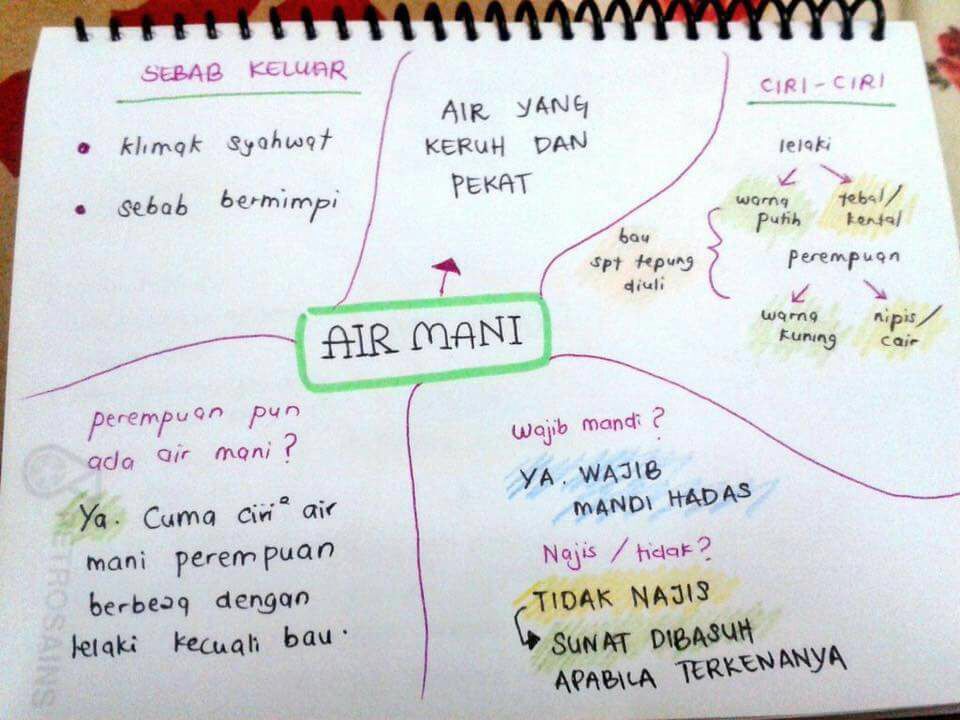 SEBAB KELUAR
• klimak syahwat
• sebab bermimpi
AIR YANG
KERUH DAN
PEKAT
CIRI-CIRI
lelaki
warna
putih
tebal/
kental
bau
spt tepung
diuli
perempuan
warna
kuning
nipis/
cair
AIR MANI
perempuan pun
ada air mani?
Ya. Cuma ciri² air
mani perempuan
berbeza dengan
lelaki kecuali bau.
Wajib mandi?
YA. WAJIB
MANDI HADAS
Najis / tidak?
TIDAK NAJIS
SUNAT DIBASUH
APABILA TERKENANYA
PETROSAINS